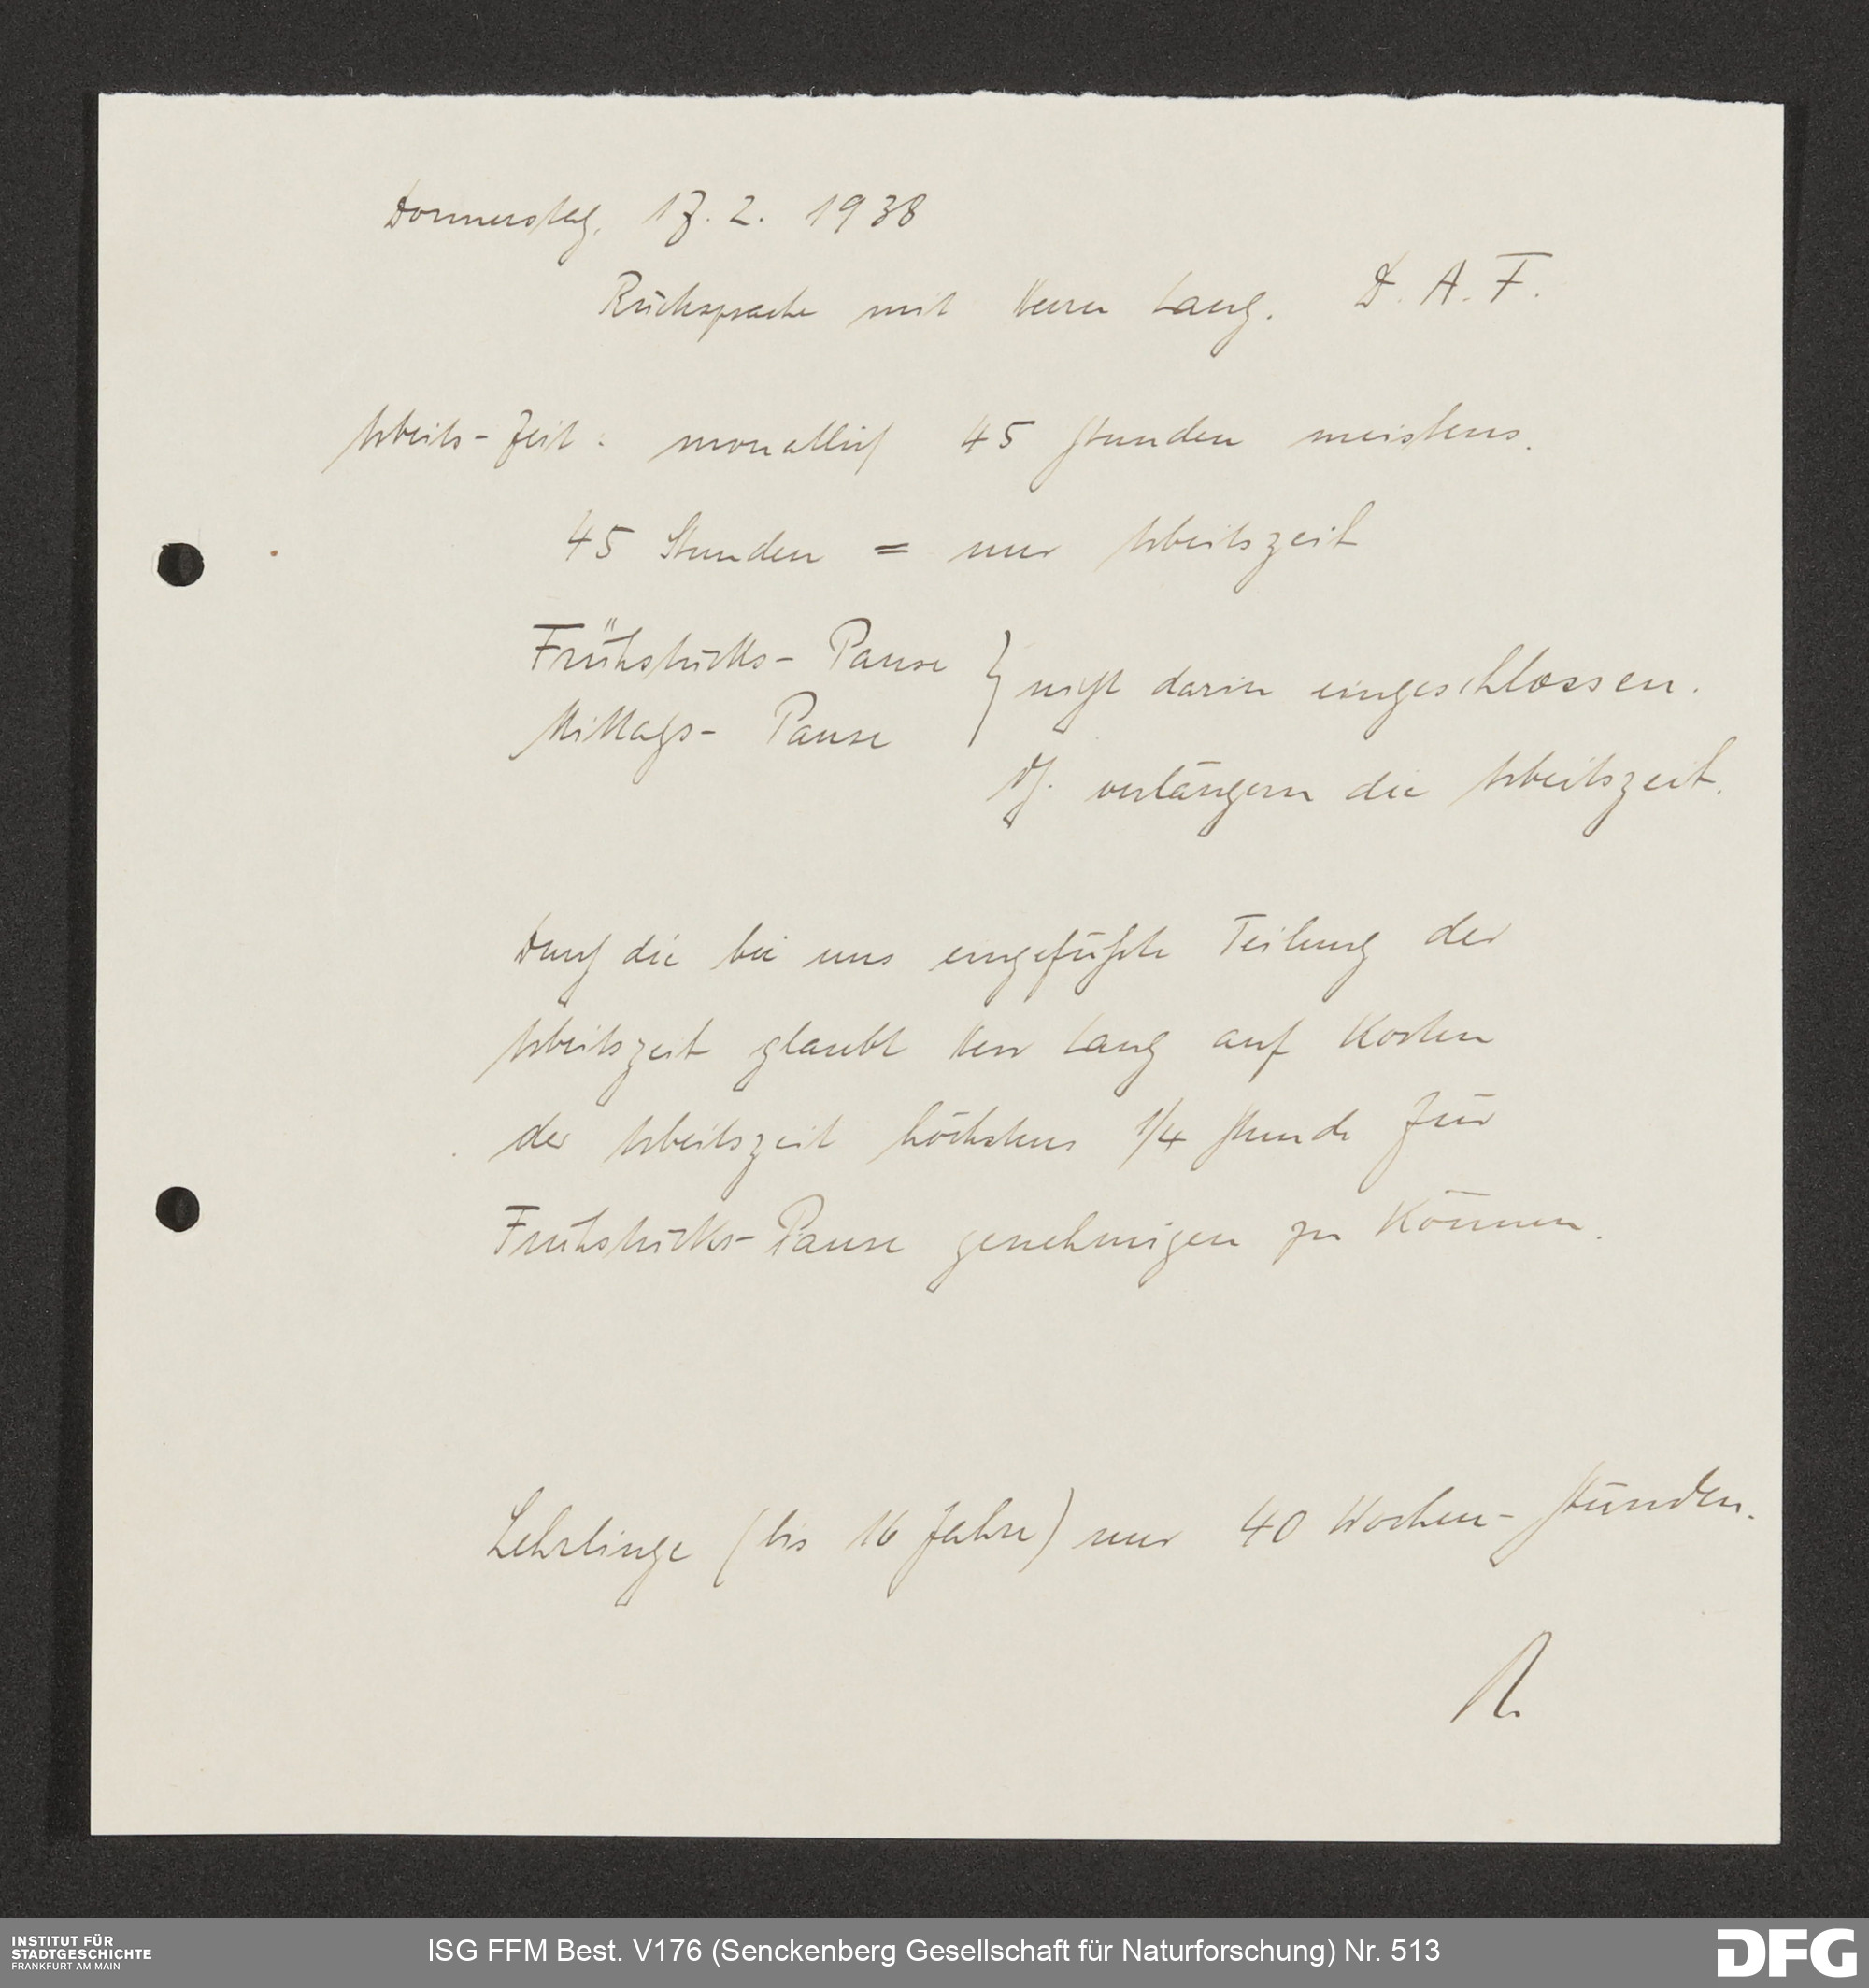 Donnerstag, 17. 2. 1938
Rücksprache mit Herrn Lang. D. A. F.
Arbeits-Zeit: monatlich 45 Stunden meistens.
45 Stunden = nur Arbeitszeit
Frühstücks- Pause } nicht darin eingeschlossen.
Mittags- Pause
verlängern die Arbeitszeit.
Durch die bei uns eingeführte Teilung der
Arbeitszeit glaubt Herr Lang auf Kosten
der Arbeitszeit höchstens 1/4 Stunde für
Frühstücks-Pause genehmigen zu können.
Lehrlinge (bis 16 Jahre) nur 40 Wochen-Stunden.
R.
INSTITUT FÜR
STADTGESCHICHTE
FRANKFURT AM MAIN
ISG FFM Best. V176 (Senckenberg Gesellschaft für Naturforschung) Nr. 513
DFG